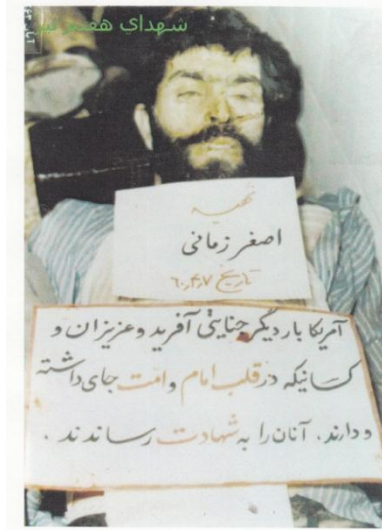 شهدای هفتم تیر
شهید
اصغر زمانی
تاریخ ۶۰٫۴٫۷
آمریکا بار دیگر جنایتی آفرید و عزیزان و
کسانیکه در قلب امام و امت جای داشته
و دارند، آنان را به شهادت رساندند .